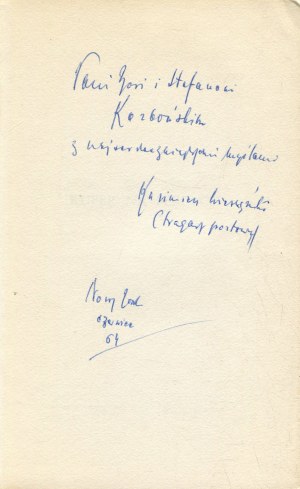 Pani Zosi i Stefanowi
Korbońskim
z najserdeczniejszymi myślami
Kazimierz Wierzyński
Nowy York
czerwiec
64